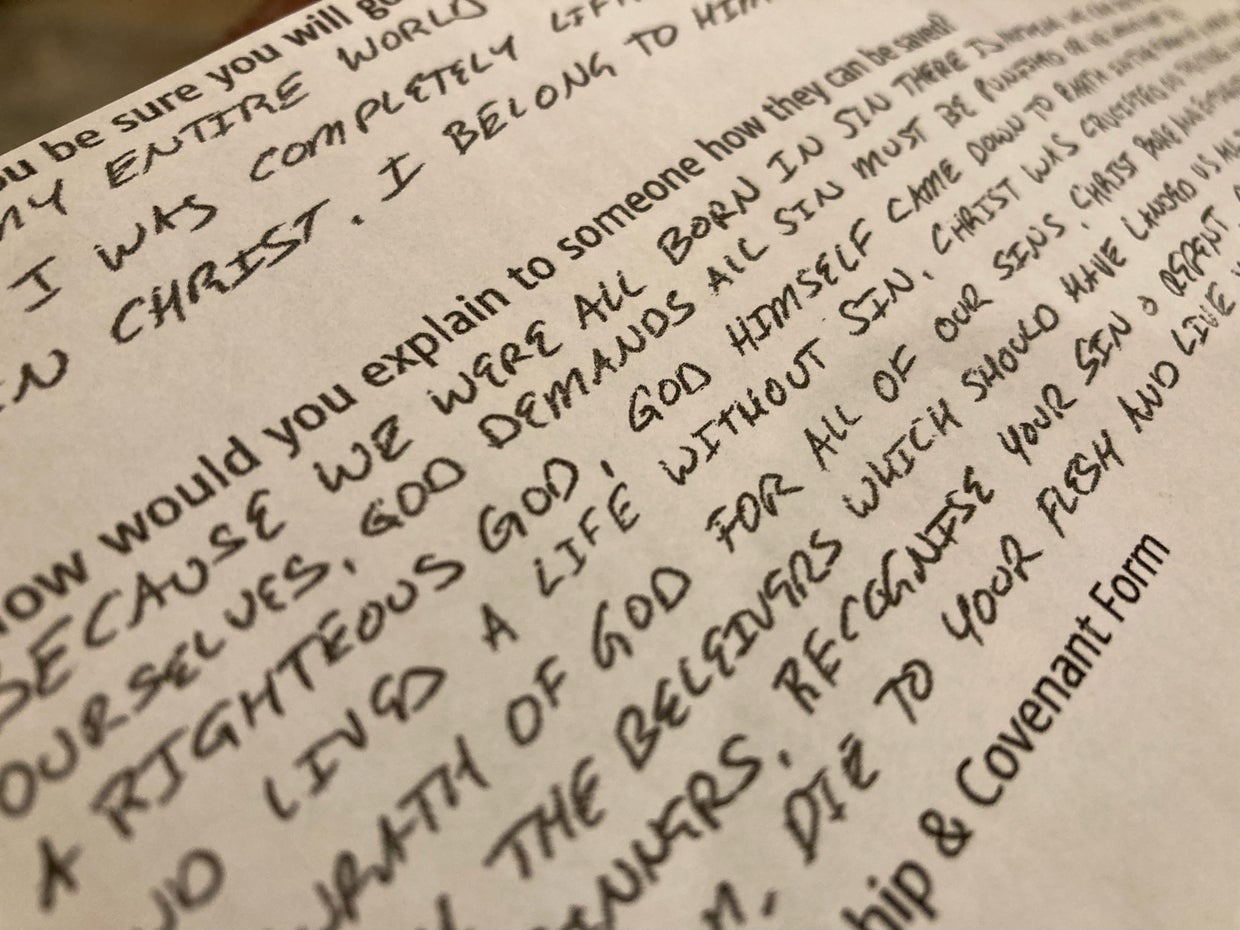 ou be sure you will go
MY ENTIRE WORLD
I WAS COMPLETELY LIFE
IN CHRIST. I BELONG TO HIM
ow would you explain to someone how they can be saved?
BECAUSE WE WERE ALL BORN IN SIN THERE IS
OURSELVES. GOD DEMANDS ALL SIN MUST BE PUNISHED
A RIGHTEOUS GOD, GOD HIMSELF CAME DOWN TO EARTH
ND LIVED A LIFE WITHOUT SIN. CHRIST WAS CRUCIFIED,
WRATH OF GOD FOR ALL OF OUR SINS. CHRIST BORE
THE BELEIVERS WHICH SHOULD HAVE LANDED US
INNERS. RECOGNISE YOUR SIN & REPENT
M. DIE TO YOUR FLESH AND LIVE
hip & Covenant Form